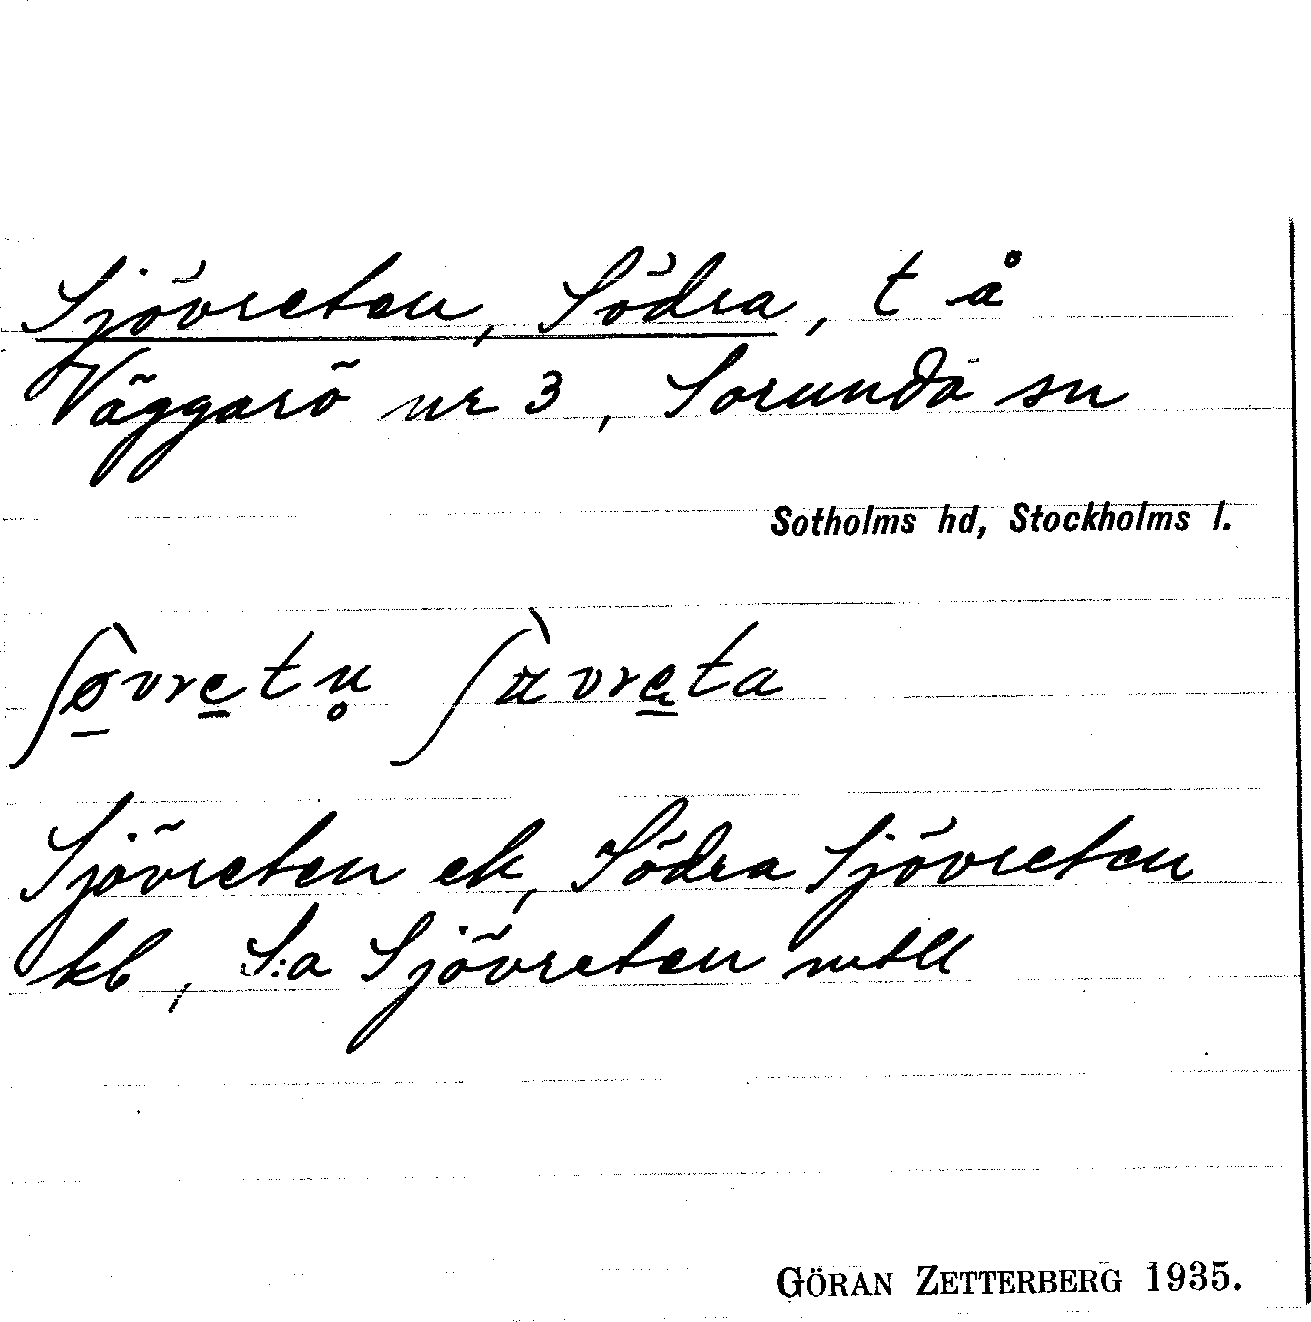 Sjövreten, Södra, t å
Väggarö nr 3, Sorunda sn
Sotholms hd, Stockholms l.
Sjövreten ek, Södra Sjövreten
kb, S:a Sjövreten mtll
GÖRAN ZETTERBERG 1935.